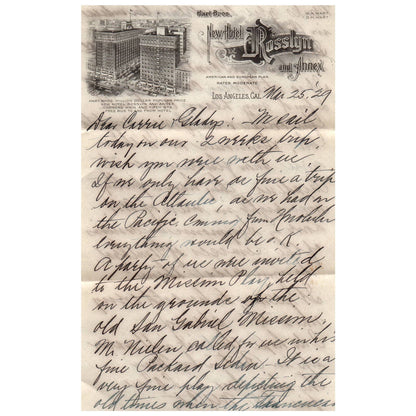 Hart Bros.
New Hotel Rosslyn
and Annex
AMERICAN AND EUROPEAN PLAN
RATES MODERATE
LOS ANGELES, CAL. Mar 25 '29
HART BROS. MILLION DOLLAR POPULAR PRICE
FREE BUS TO AND FROM HOTEL
Dear Carrie & Gladys: We sail
today on our 2 weeks trip,
wish you were with us.
If we only have as fine a trip
on the Atlantic, as we had on
the Pacific, coming from Honolulu
everything would be O.K.
A party of us were invited
to the Mission Play, held
on the grounds of the
old San Gabriel Mission,
Mr. Nielen called for us in his
fine Packard Sedan. It is a
very fine play depicting the
old times when the Franciscan